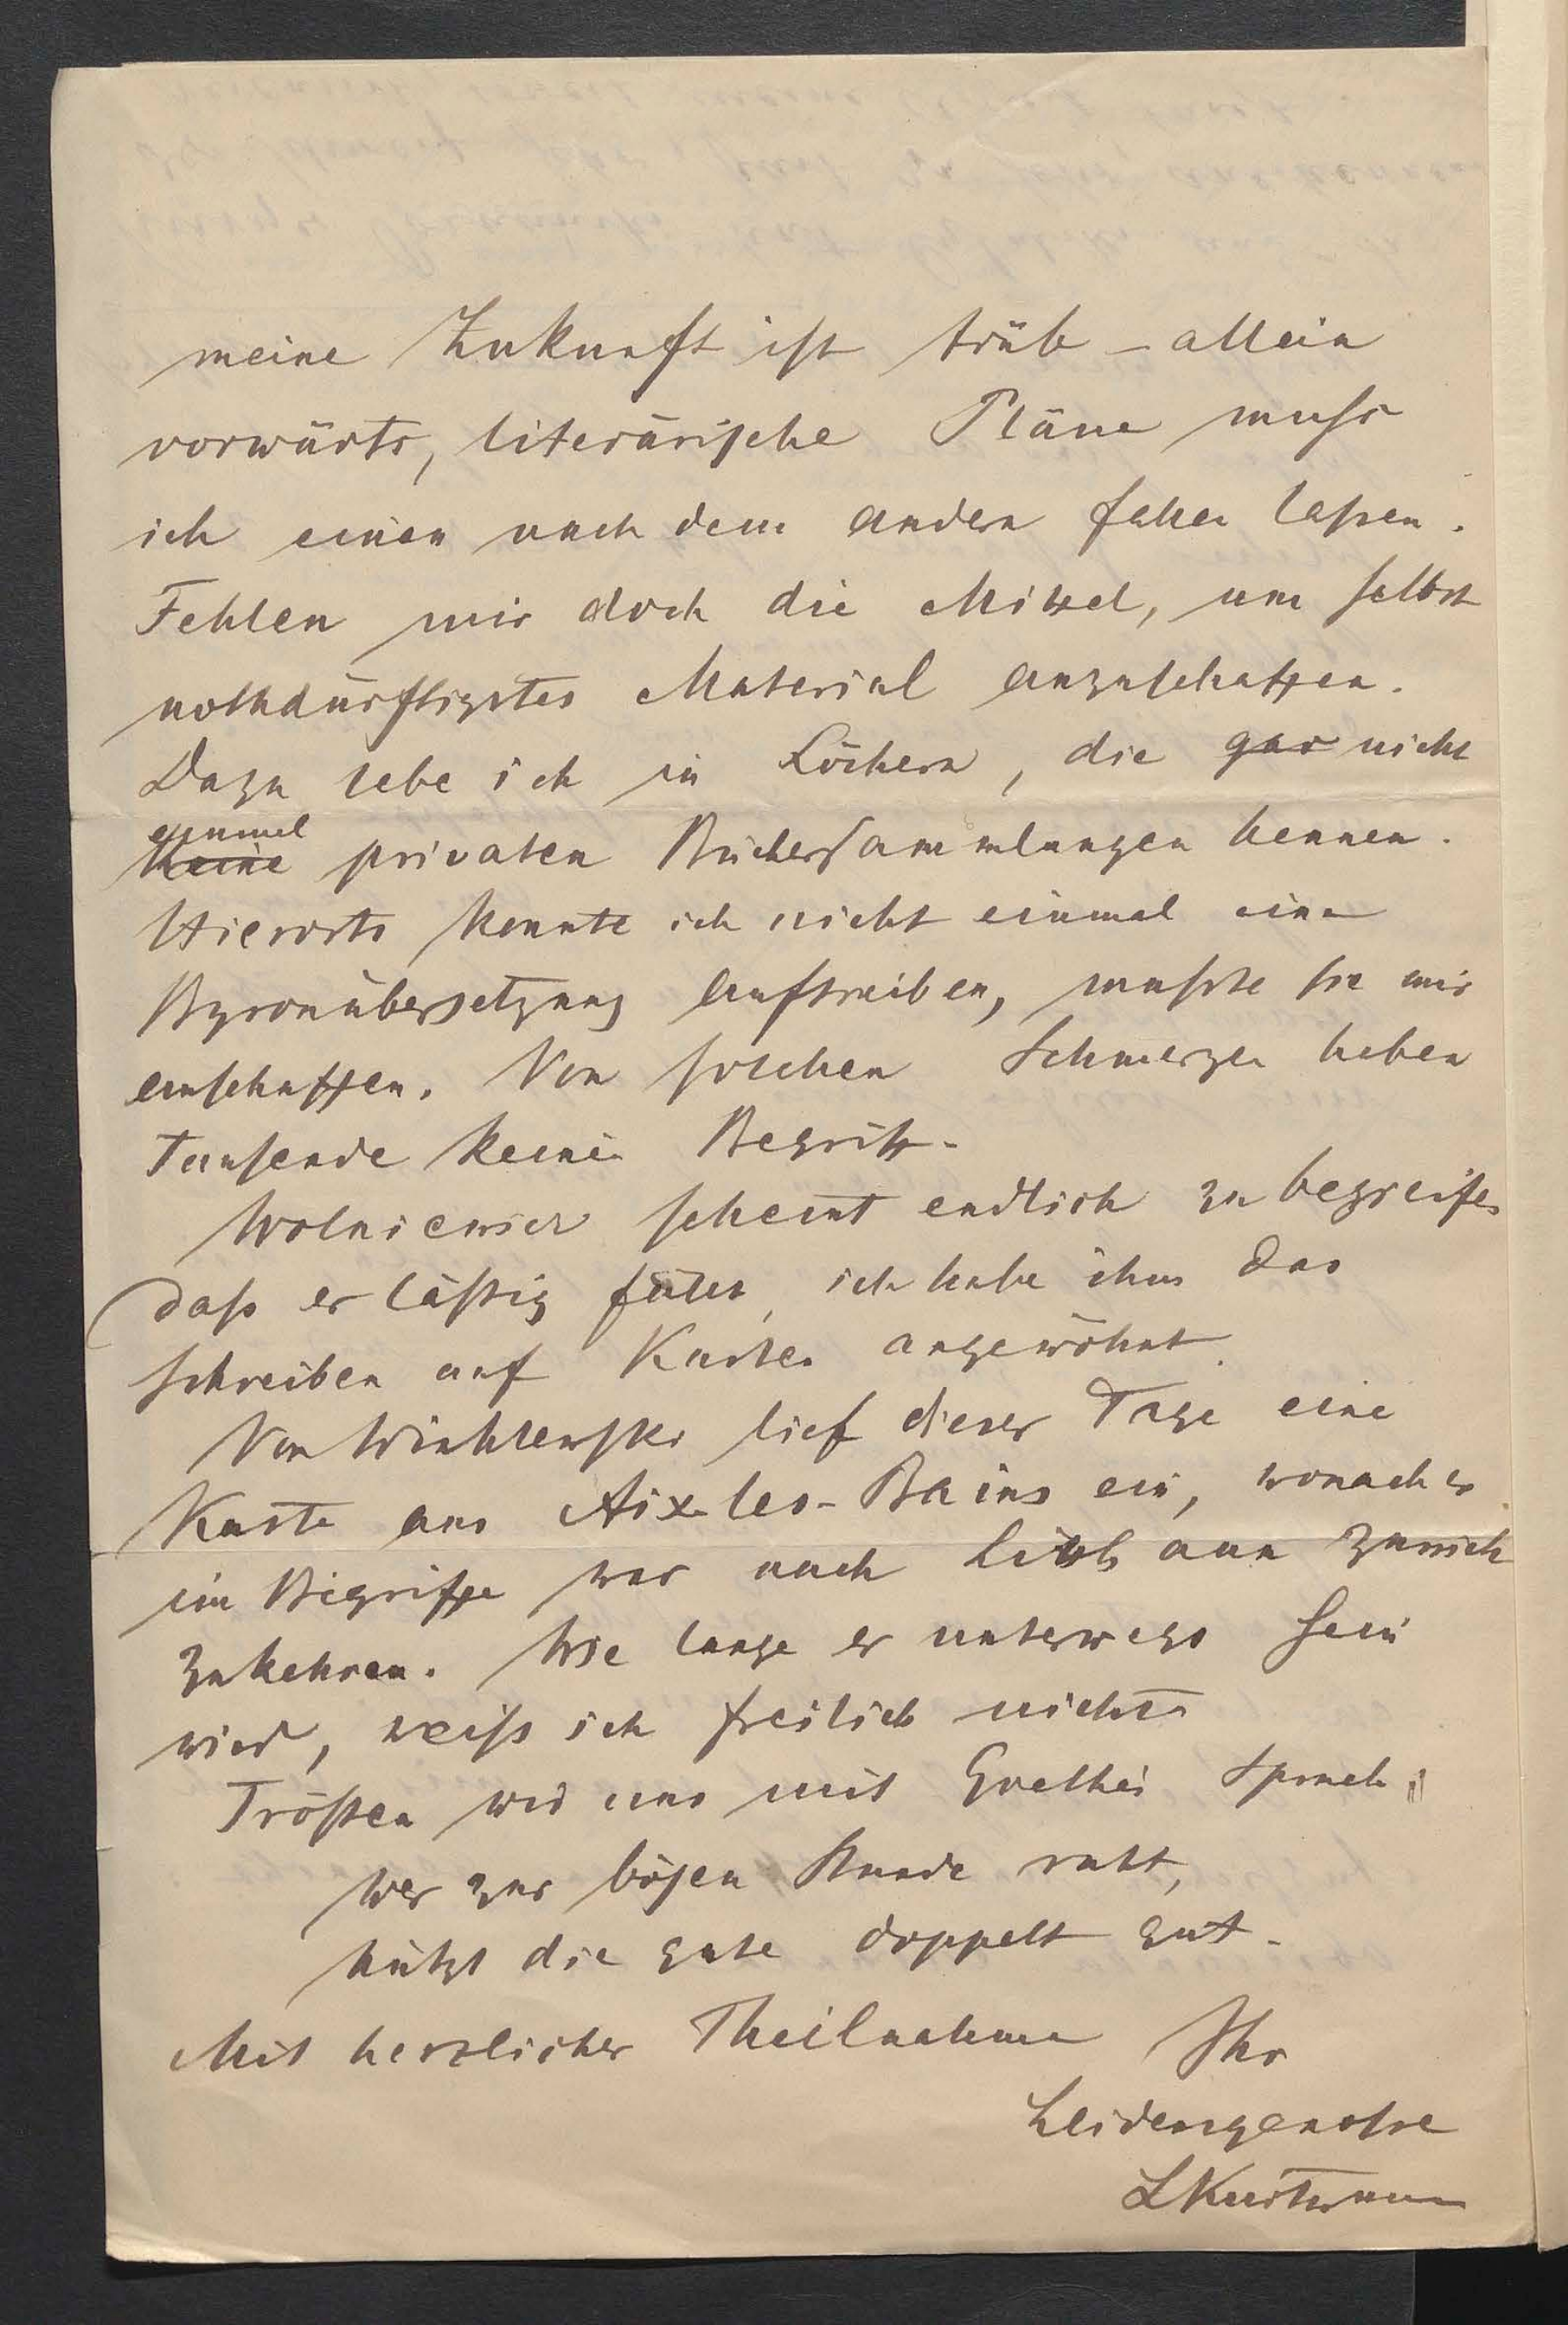 meine Zukunft ist trüb – allein
vorwärts, literärische Pläne muss
ich einen nach dem andern fallen lassen.
Fehlen mir doch die Mittel, um selbst
nothdürftigstes Material anzuschaffen.
Dazu lebe ich in Löchern, die gar nicht
einmal
keine privaten Büchersammlungen kennen.
Hierorts konnte ich nicht einmal eine
Byronübersetzung auftreiben, musste sie mir
anschaffen. Von solchen Schmerzen haben
Tausende keinen Begriff.
scheint endlich zu begreifen
dass er lässig fällt, ich habe ihm das
schreiben auf Karten angewöhnt.
Von lief dieser Tage eine
Karte aus Aix-les-Bains ein, wonach er
im Begriffe war nach zurück
zukehren. Wie lange er unterwegs sein
wird, weiss ich freilich nicht.
Trösten wir uns mit Goethes Spruch:
Wer zur bösen Stunde ruht,
nützt die gute doppelt gut.
Mit herzlicher Theilnahme Ihr
Leidensgenosse